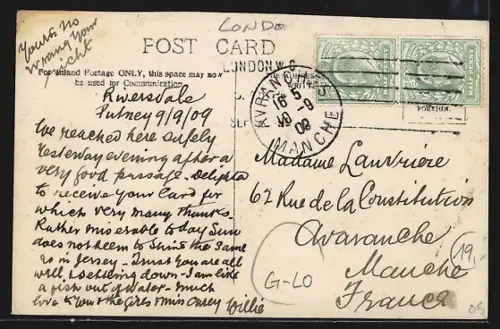 LONDO
Yours no
wrong your
right
POST CARD
LONDON.W.C
For Inland Postage ONLY, this space may now
be used for Communication.
HALF PENNY
AVRANCHES
16 5
10 - 9
09
MANCHE
Riversdale
Putney 9/9/09
We reached here safely
yesterday evening after a
very good passage. Delighted
to receive your Card for
which very many thanks.
Rather miserable to day Sun
does not seem to Shine the Same
as in Jersey - Trust you are all
well, & settling down - I am like
a fish out of water - much
love to You & the girls & Miss Carey Willie
Madame Lauvriere
62 Rue de la Constitution
Avaranche
Manche
France
G-LO
19,-
09